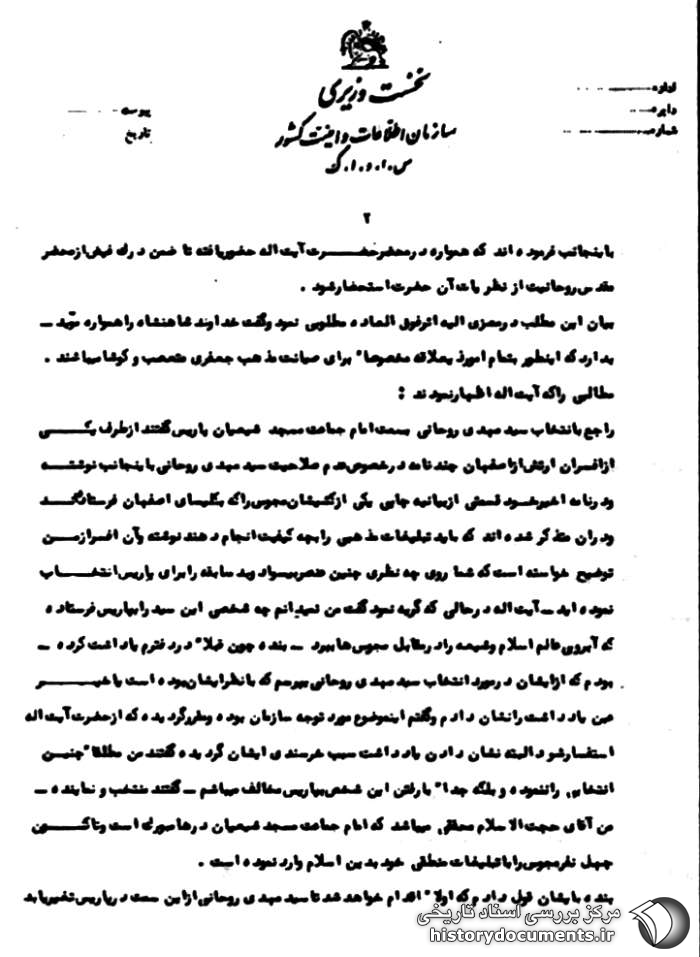 نخست وزیری
سازمان اطلاعات و امنیت کشور
س.ا.و.ا.ک
اداره
دایره
شماره
پیوست
تاریخ
۲
باینجانب فرموده اند که همواره در محضر حضرت آیت اله حضور یافته تا ضمن درك فیض از محضر
مقدس روحانیت از نظریات آن حضرت استحضار شود .
بیان این مطلب در معزی الیه اثر فوق العاده مطلوبی نمود و گفت خداوند شاهنشاه را همواره موید ـ
بدارد که اینطور بتمام امور ذیعلاقه مخصوصا" برای صیانت مذهب جعفری متعصب و کوشا میباشند .
مطالبی را که آیت اله اظهار نمودند :
راجع بانتخاب سید مهدی روحانی بسمت امام جماعت مسجد شیعیان پاریس گفتند از طرف یکی
از افسران ارتش از اصفهان چند نامه در خصوص عدم صلاحیت سید مهدی روحانی باینجانب نوشته
و در نامه اخیر خود قسمتی از بیانیه چاپی یکی از کشیشان مجوس را که بکلیسای اصفهان فرستاده اند
و در ان متذکر شده اند که باید تبلیغات مذهبی را بچه کیفیت انجام دهند نوشته و آن افسر از من
توضیح خواسته است که شما روی چه نظری چنین عنصر بیسواد و بد سابقه را برای پاریس انتخاب
نموده اید ـ آیت اله در حالی که گریه نمود گفت من نمیدانم چه شخصی این سید را بپاریس فرستاده
که آبروی عالم اسلام و شیعه را در مقابل مجوس ها ببرد ـ بنده چون قبلا" در دفترم یادداشت کرده ـ
بودم که از ایشان در مورد انتخاب سید مهدی روحانی بپرسم که با نظر ایشان بوده است یا خیر
عین یادداشت را نشان دادم و گفتم اینموضوع مورد توجه سازمان بوده و مقرر گردیده که از حضرت آیت اله
استفسار شود البته نشان دادن یادداشت سبب خرسندی ایشان گردیده گفتند من مطلقا" چنین
انتخابی را ننموده و بلکه جدا" با رفتن این شخص بپاریس مخالف میباشم ـ گفتند منتخب و نماینده ـ
من آقای حجت الاسلام محققی میباشد که امام جماعت مسجد شیعیان در هامبورك است و تاکنون
چهل نفر مجوس را با تبلیغات منطقی خود بدین اسلام وارد نموده است .
بنده بایشان قول دادم که اولا" اقدام خواهد شد تا سید مهدی روحانی از این سمت در پاریس تغییر یابد
مرکز بررسی اسناد تاریخی
historydocuments.ir